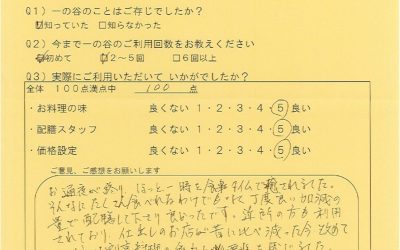 Q1）一の谷のことはご存じでしたか？
☑知っていた □知らなかった
Q2）今まで一の谷のご利用回数をお教えください
☑初めて ☑2～5回 □6回以上
Q3）実際にご利用いただいて いかがでしたか？
全体 100点満点中 100 点
・お料理の味 良くない 1・2・3・4・5 良い
・配膳スタッフ 良くない 1・2・3・4・5 良い
・価格設定 良くない 1・2・3・4・5 良い
ご意見、ご感想をお願いします
お通夜が終り、ほっと一時を食事タイムで癒されました。
そんなにたくさん食べれるわけでもなく、丁度良い加減の
量で配膳して下さり良かったです。近所の方も利用
されており、仕出しのお店が昔に比べ減った今 改めて